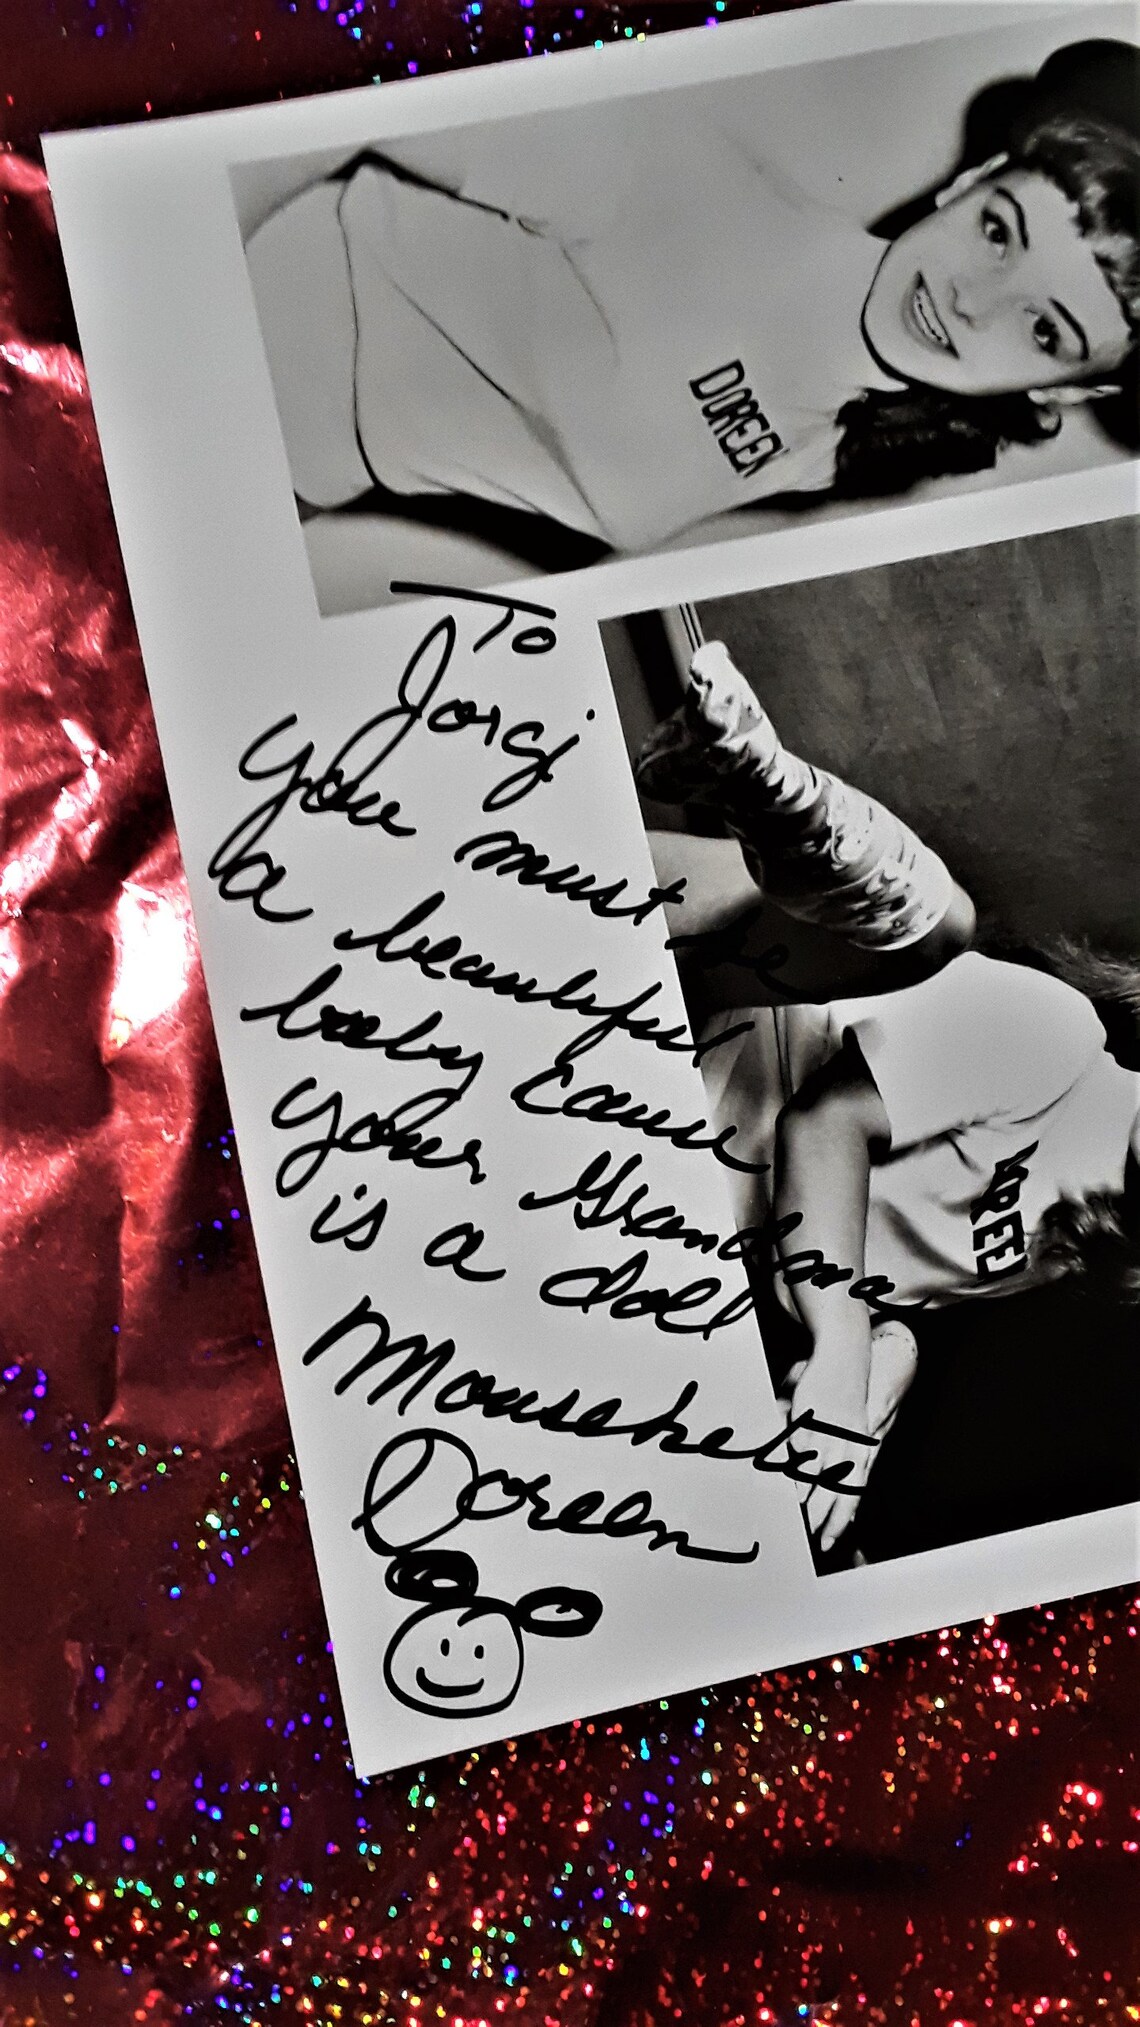 DOREEN
To
Jorgi
you must be
a beautiful
baby cause
your Grandma
is a doll
Mouseketeer
Doreen
DOREEN